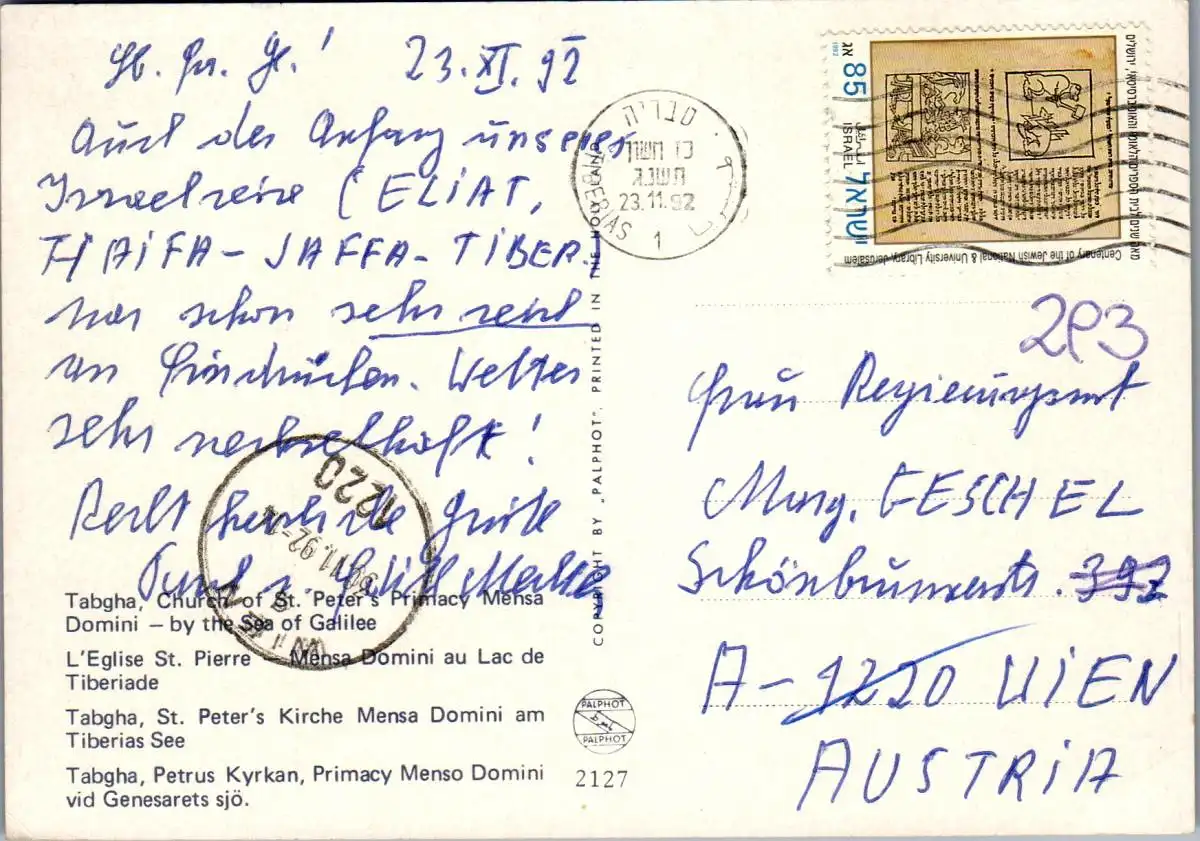 23.XI.92
Auch der Anfang unserer
Israelreise (ELiAT,
HAiFA - JAFFA - TIBER.
war schon sehr reich
an Eindrücken. Wetter
sehr wechselhaft!
Recht herzliche Grüße
Tabgha, Church of St. Peter's Primacy Mensa
Domini — by the Sea of Galilee
L'Eglise St. Pierre — Mensa Domini au Lac de
Tiberiade
Tabgha, St. Peter's Kirche Mensa Domini am
Tiberias See
Tabgha, Petrus Kyrkan, Primacy Menso Domini
vid Genesarets sjö.
COPYRIGHT BY "PALPHOT", PRINTED IN THE HOLY LAND
PALPHOT
PALPHOT
2127
טבריה
כז חשון
תשנג
23.11.92
TIBERIAS 1
1220
WIEN
85
1992
ישראל
ISRAEL
Centenary of the Jewish National & University Library, Jerusalem
293
Frau Regierungsrat
Marg. GESCHEL
A-1220 WIEN
AUSTRiA